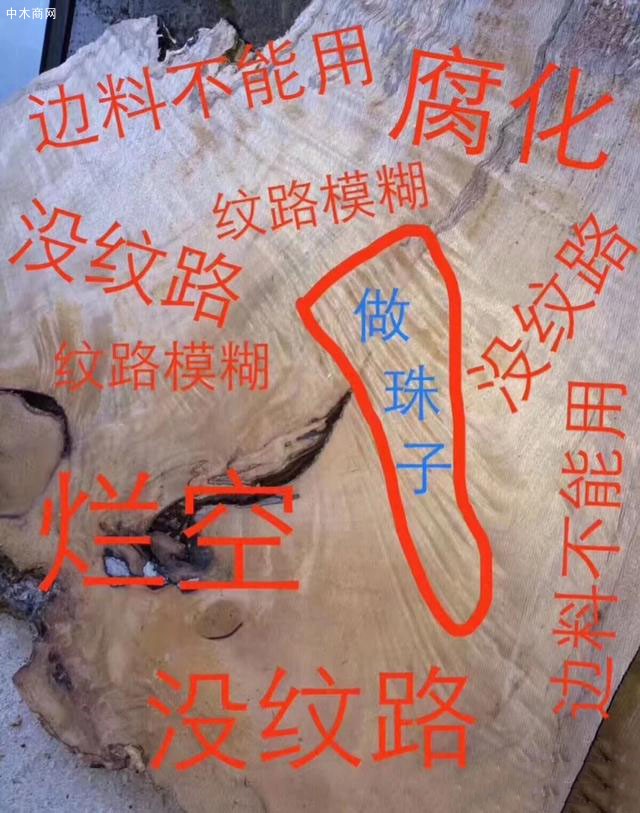 中木商网
边料不能用
腐化
纹路模糊
没纹路
没纹路
纹路模糊
做
珠
子
烂空
边料不能用
没纹路